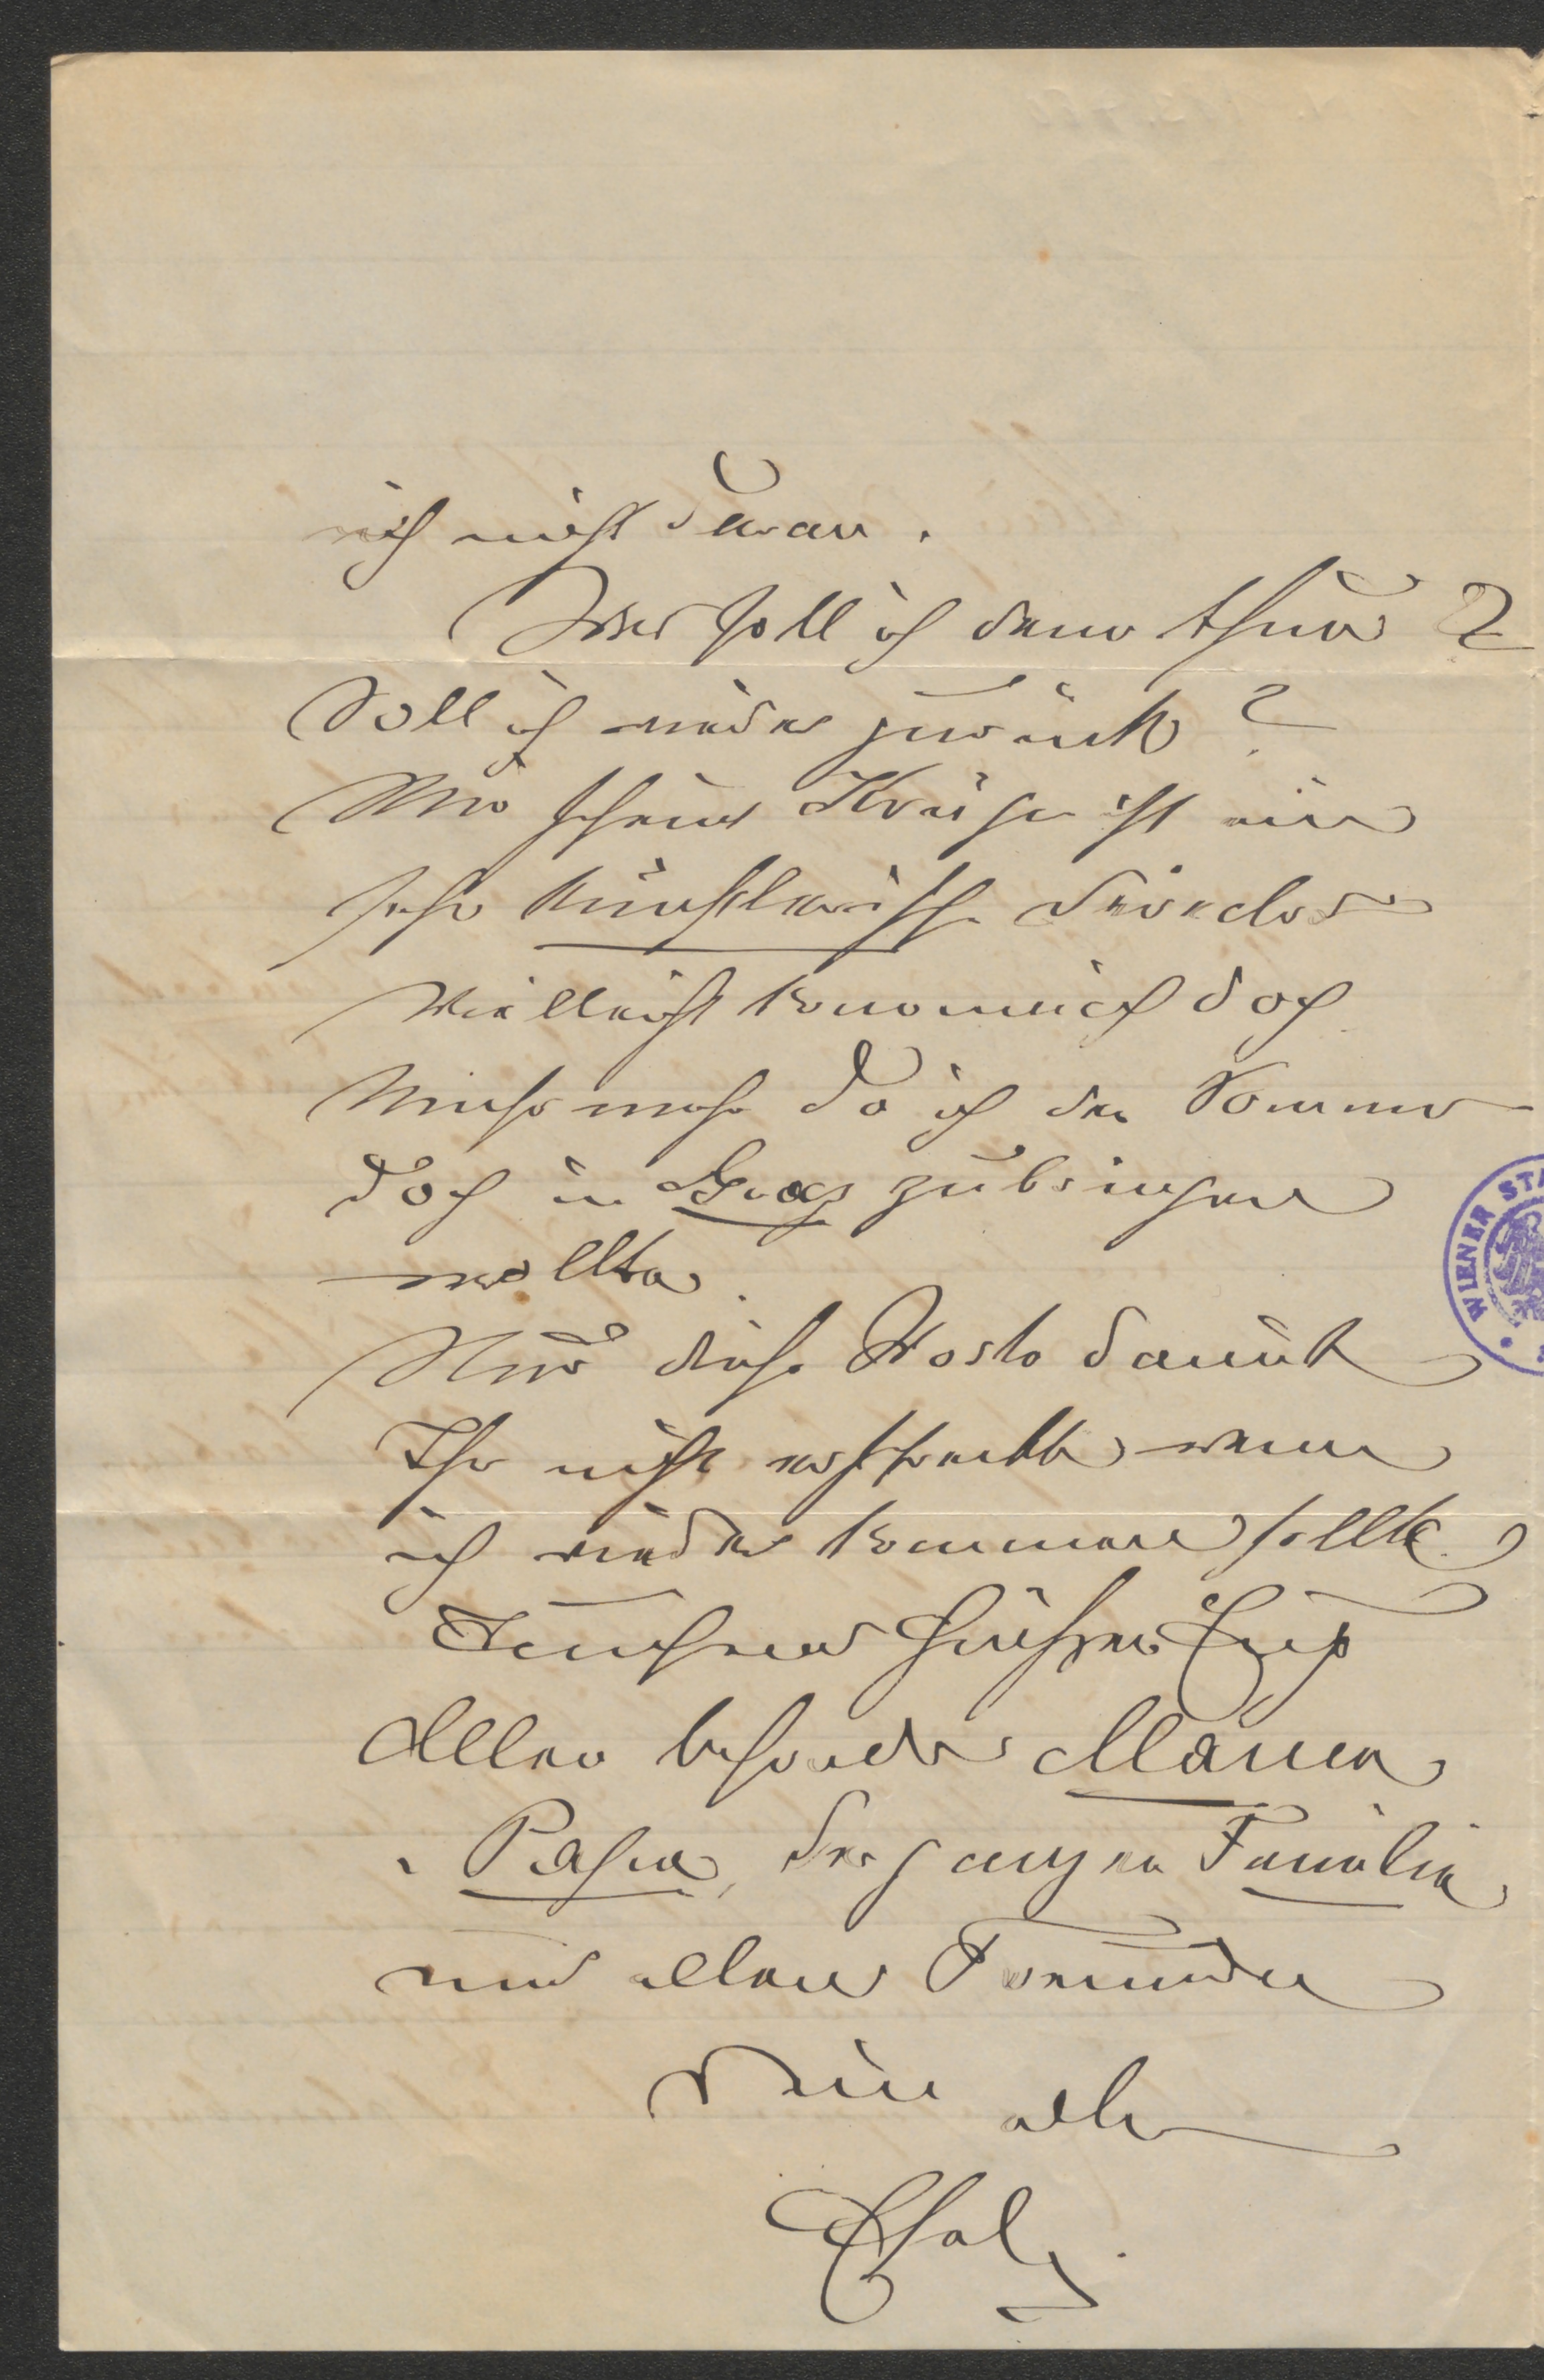 ich nicht daran.
Was soll ich denn thun?
Soll ich wieder zurück?
Mir scheint Krüse ist ein
sehr künstlerisch
Vielleicht komm ich doch
umso mehr da ich den Sommer
doch in Graz zubringen
wollte.
Nur diese Worte damit
Ihr nicht erschreckt wenn
ich wieder kommen sollte.
Tausend Grüsse Kuß
Allen besonders Mama
Papa, der ganzen Familie
und allen Freunden
Dein alter
WIENER ST